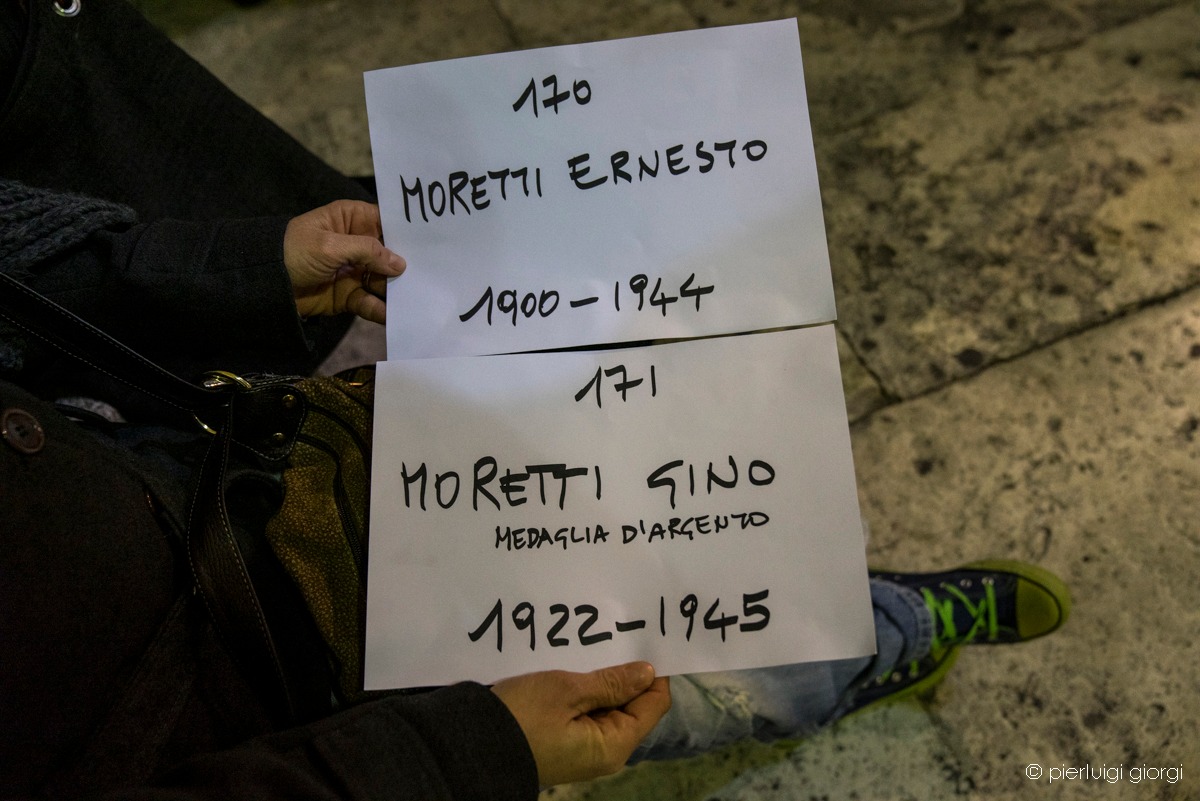 170
MORETTI ERNESTO
1900-1944
171
MORETTI GINO
MEDAGLIA D'ARGENTO
1922-1945
© pierluigi giorgi